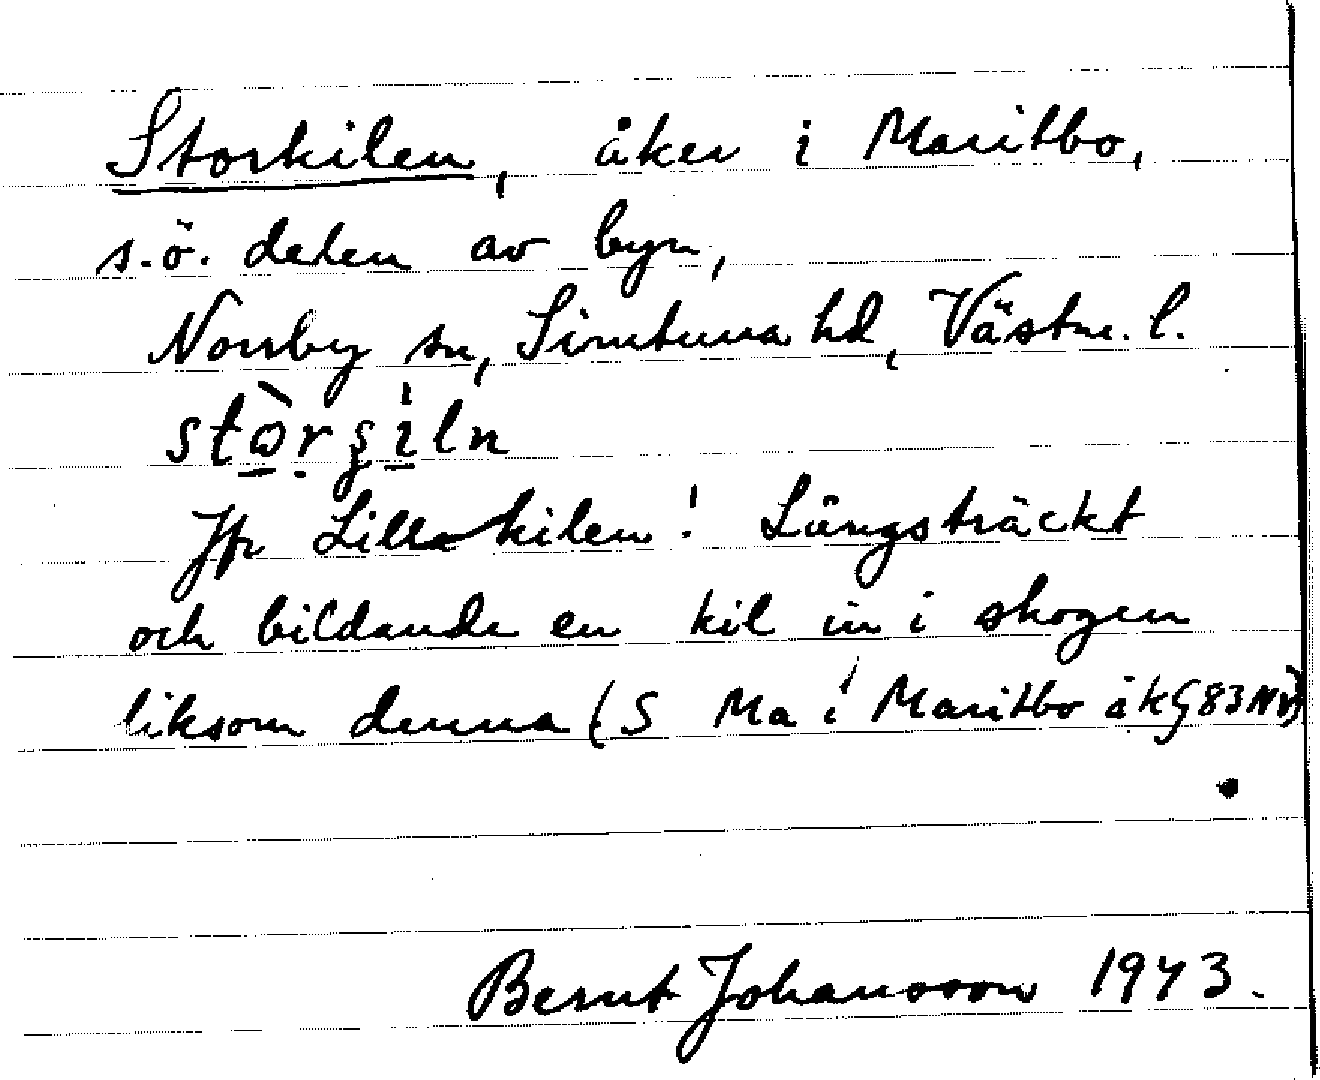 Storkilen, åker i Maritbo,
s.ö. delen av byn,
Norrby sn, Simtuna hd, Västm. l.
Jfr Lillkilen! Långsträckt
och bildande en kil in i skogen
liksom denna (S Ma i Maritbo åk
Bernt Johansson 1943.